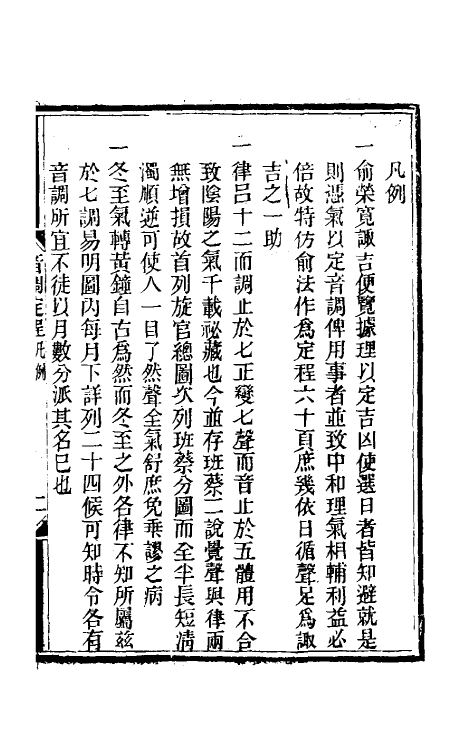 凡例
一俞榮寬諏吉便覽據理以定吉凶使選日者皆知避就是
則憑氣以定音調俾用事者並致中和理氣相輔利益必
倍故特仿俞法作爲定程六十頁庶幾依日循聲足爲諏
吉之一助
一律呂十二而調止於七正變七聲而音止於五體用不合
致陰陽之氣千載祕藏也今並存班蔡二說覺聲與律兩
無增損故首列旋宮總圖次列班蔡分圖而全半長短淸
濁順逆可使人一目了然聲全氣舒庶免乖謬之病
一冬至氣轉黃鐘自古爲然而冬至之外各律不知所屬茲
於七調易明圖內每月下詳列二十四候可知時令各有
音調所宜不徒以月數分派其名已也
音調定程凡例
一